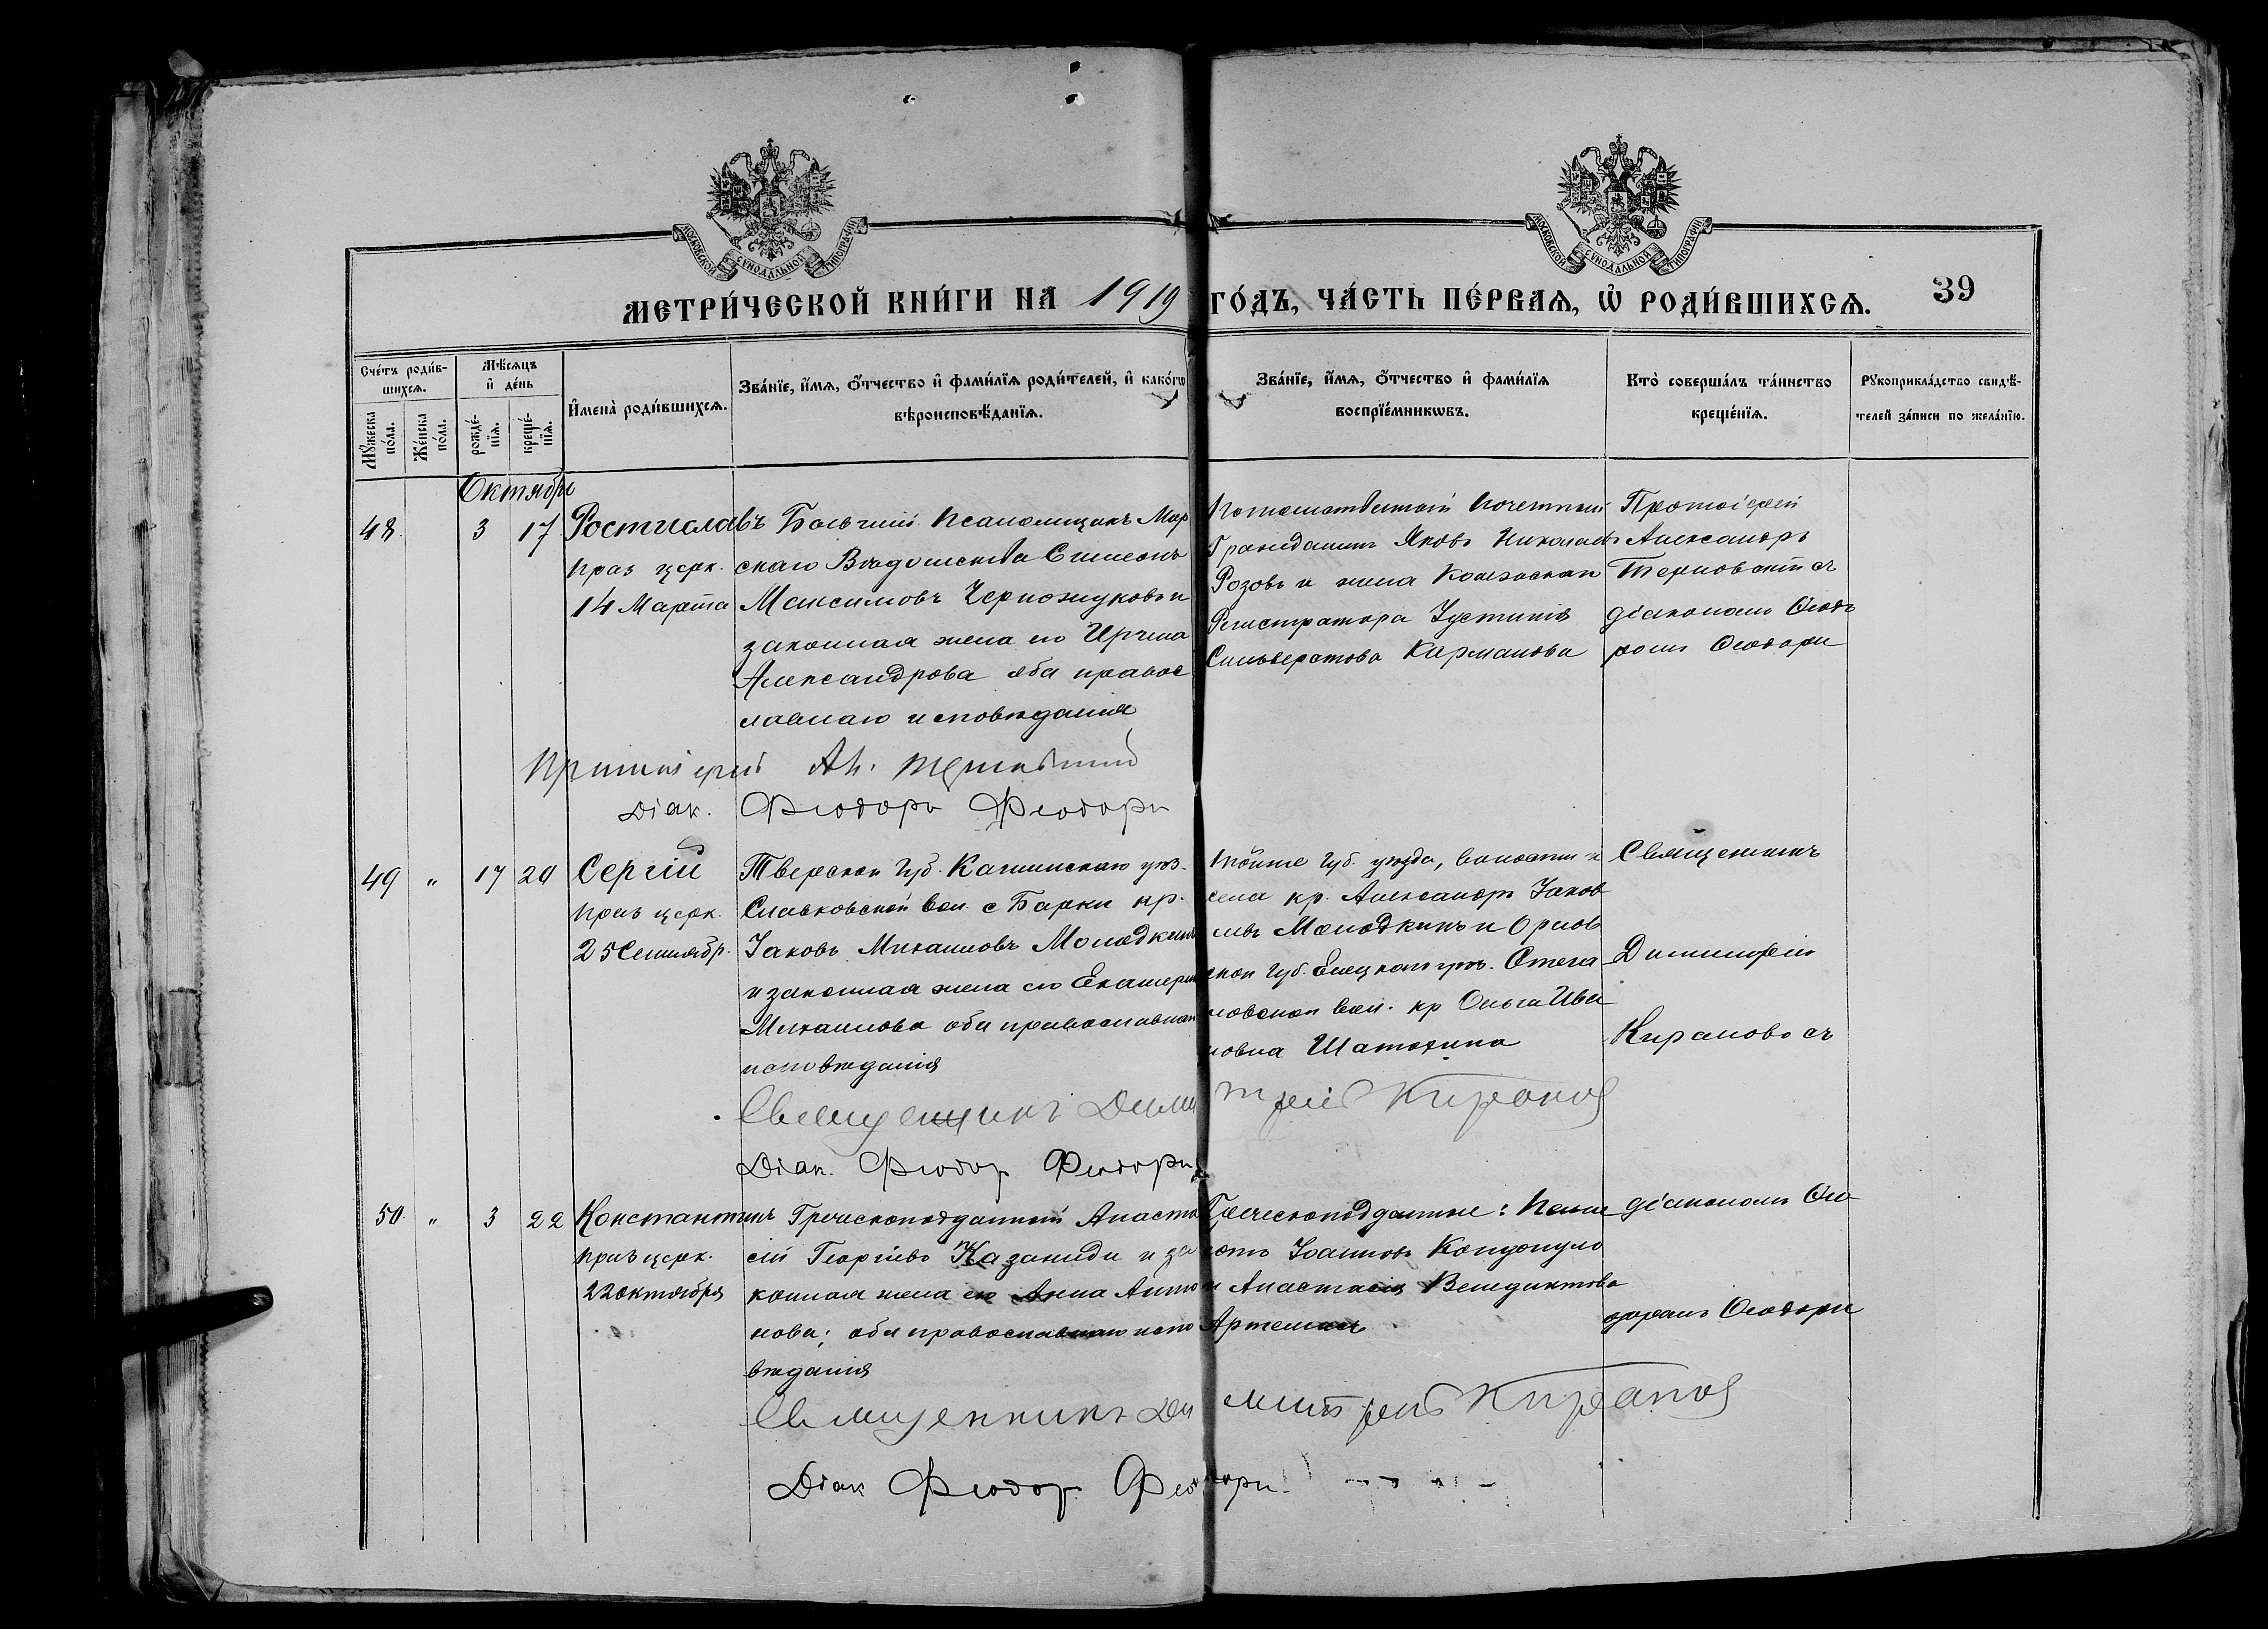 МОСКОВСКОЙ СѴНОДАЛЬНОЙ ТИПОГРАФІИ
МОСКОВСКОЙ СѴНОДАЛЬНОЙ ТИПОГРАФІИ
МЕТРИ́ЧЕСКОЙ КНИ́ГИ НА 1919 ГО́ДЪ, ЧА́СТЬ ПЕ́РВАѦ, Ѡ҆ РОДИ́ВШИХСѦ. 39
Сче́тъ роди́в-
шихсѧ.
Мꙋ́жеска по́ла.
Же́нска по́ла.
Мѣ́сѧцъ и҆ де́нь
рожде́-нїѧ.
креще́-нїѧ.
И҆мена̀ роди́вшихсѧ.
Зва́нїе, и҆́мѧ, ѻ҆́тчество и҆ фами́лїѧ роди́телей, и҆ како́гѡ
вѣроисповѣ́данїѧ.
Зва́нїе, и҆́мѧ, ѻ҆́тчество и҆ фами́лїѧ
воспрїе́мникѡвъ.
Кто̀ соверша́лъ та́инство
креще́нїѧ.
Рꙋкоприкла́дство свидѣ́-
телей за́писи по жела́нїю.
Октябрь
48 3 17 Ростиславъ
праз церк.
14 Марта
Бывшій Псаломщикъ Мор
скаго Вѣдомства Симеонъ
Максимовъ Черножуковъ и
законная жена его Ирина
Александрова оба правос
лавнаго исповѣданія
Потомственный Почетный
Гражданинъ Яковъ Николаевъ
Розовъ и жена Коллежскаго
Регистратора Іустинія
Сильвестрова Карманова
Протоіерей
Александръ
Терновскій съ
діакономъ Ѳеодо
ромъ Ѳеодори
Протоіерей Ал. Терновскій
Діак. Ѳеодоръ Ѳеодори
49 " 17 20 Сергій
праз церк.
25 Сентябр.
Тверской Губ. Кашинскаго уѣз.
Славковской вол. с Барки кр.
Іаковъ Михаиловъ Молодкинъ
и законная жена его Екатерина
Михаилова оба православнаго
исповѣданія
тойже губ. уѣзда, волости и
села кр. Александръ Іаков
левъ Молодкинъ и Орлов
ской губ. Елецкаго уѣз. Стега
ловской вол. кр Ольга Ива
новна Шатохина
Священникъ
Димитрій
Кирановъ съ
Священникъ Димитрій Кирановъ
Діак. Ѳеодор Ѳеодори
50 " 3 22 Константинъ
праз церк.
22 октября
Греческоподданный Анаста
сій Георгіевъ Казаниди и за
конная жена его Анна Анто
нова; оба православнаго испо
вѣданія
Греческоподданные:
Іоанновъ Кондопуло
и Анастасія Венедиктова
діакономъ Ѳео
доромъ Ѳеодори
Священникъ Димитрій Кирановъ
Діак Ѳеодор Ѳеодори